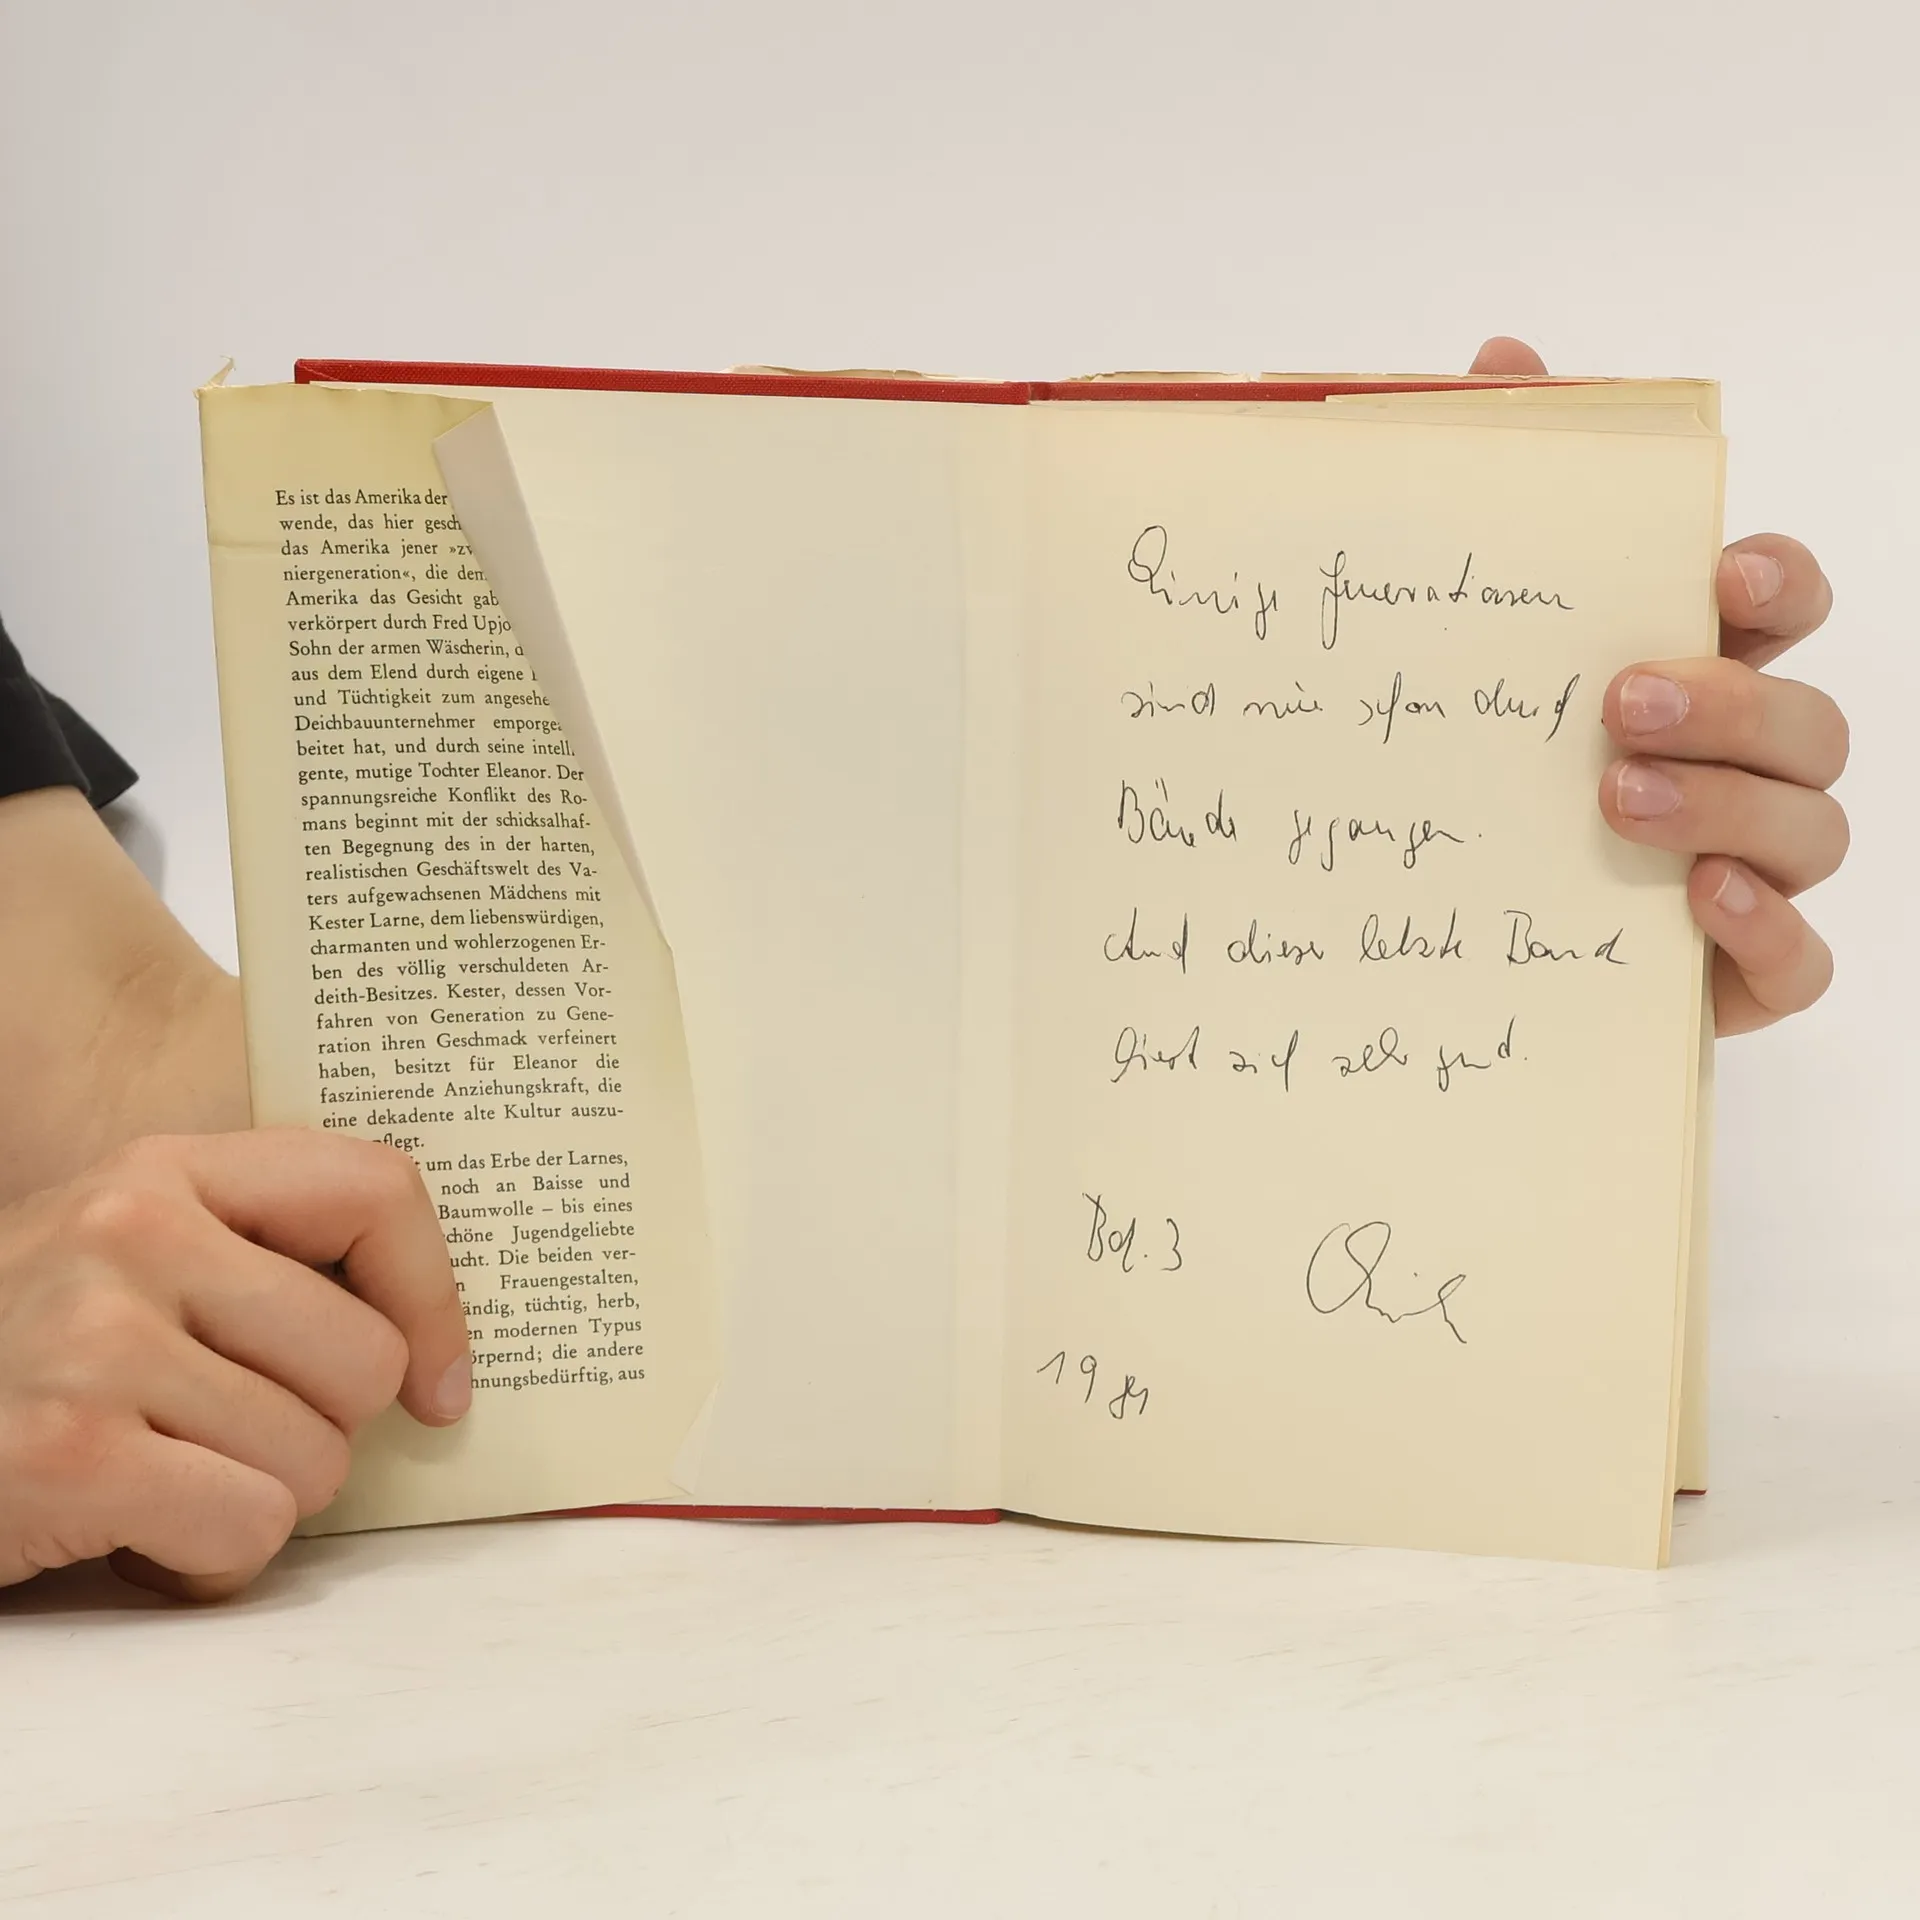 Es ist das Amerika der
wende, das hier gesch
das Amerika jener »zw
niergeneration«, die dem
Amerika das Gesicht gab
verkörpert durch Fred Upjo
Sohn der armen Wäscherin, d
aus dem Elend durch eigene
und Tüchtigkeit zum angesehe
Deichbauunternehmer emporgear
beitet hat, und durch seine intelli
gente, mutige Tochter Eleanor. Der
spannungsreiche Konflikt des Ro-
mans beginnt mit der schicksalhaf-
ten Begegnung des in der harten,
realistischen Geschäftswelt des Va-
ters aufgewachsenen Mädchens mit
Kester Larne, dem liebenswürdigen,
charmanten und wohlerzogenen Er-
ben des völlig verschuldeten Ar-
deith-Besitzes. Kester, dessen Vor-
fahren von Generation zu Gene-
ration ihren Geschmack verfeinert
haben, besitzt für Eleanor die
faszinierende Anziehungskraft, die
eine dekadente alte Kultur auszu-
pflegt.
um das Erbe der Larnes,
noch an Baisse und
Baumwolle – bis eines
chöne Jugendgeliebte
ucht. Die beiden ver-
n Frauengestalten,
ändig, tüchtig, herb,
en modernen Typus
örpernd; die andere
hnungsbedürftig, aus
Einige Generationen
sind nun schon durch
Bände gegangen.
Und dieser letzte Band
liest sich sehr gut.
Bd. 3
19